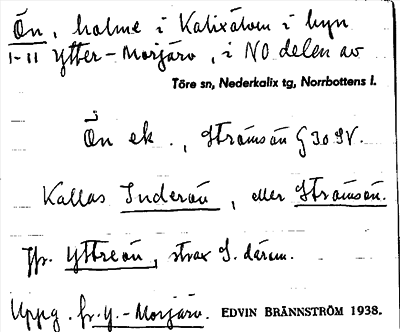 Ön, holme i Kalixälven i byn
1-11 Ytter-Morjärv, i NO delen av
Töre sn, Nederkalix tg, Norrbottens l.
Ön ek., Strömsön G 30 SV.
Kallas Inderön, eller Strömsön.
Jfr. Yttreön, strax S. därom.
Uppg. fr. Y.-Morjärv. EDVIN BRÄNNSTRÖM 1938.